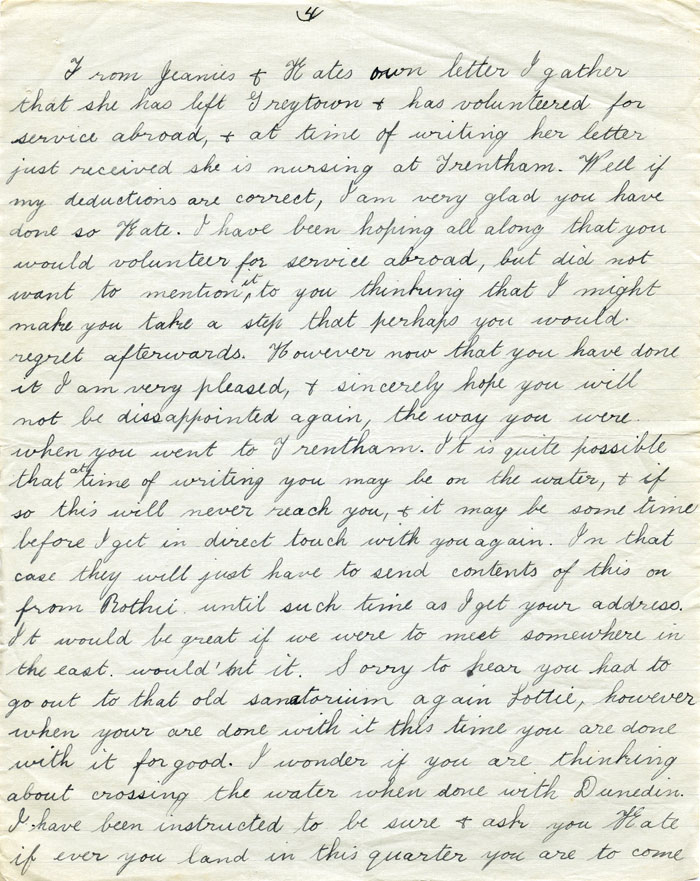 4
From Jeanies & Kates own letter I gather
that she has left Greytown & has volunteered for
service abroad, & at time of writing her letter
just received she is nursing at Trentham. Well if
my deductions are correct, I am very glad you have
done so Kate. I have been hoping all along that you
would volunteer for service abroad, but did not
want to mention it, to you thinking that I might
make you take a step that perhaps you would
regret afterwards. However now that you have done
it I am very pleased, & sincerely hope you will
not be dissappointed again, the way you were
when you went to Trentham. It is quite possible
that at time of writing you may be on the water, & if
so this will never reach you, & it may be some time
before I get in direct touch with you again. In that
case they will just have to send contents of this on
from Rothii until such time as I get your address.
It would be great if we were to meet somewhere in
the east. would'nt it. Sorry to hear you had to
go out to that old sanatorium again Lottie, however
when your are done with it this time you are done
with it for good. I wonder if you are thinking
about crossing the water when done with Dunedin.
I have been instructed to be sure & ask you Kate
if ever you land in this quarter you are to come